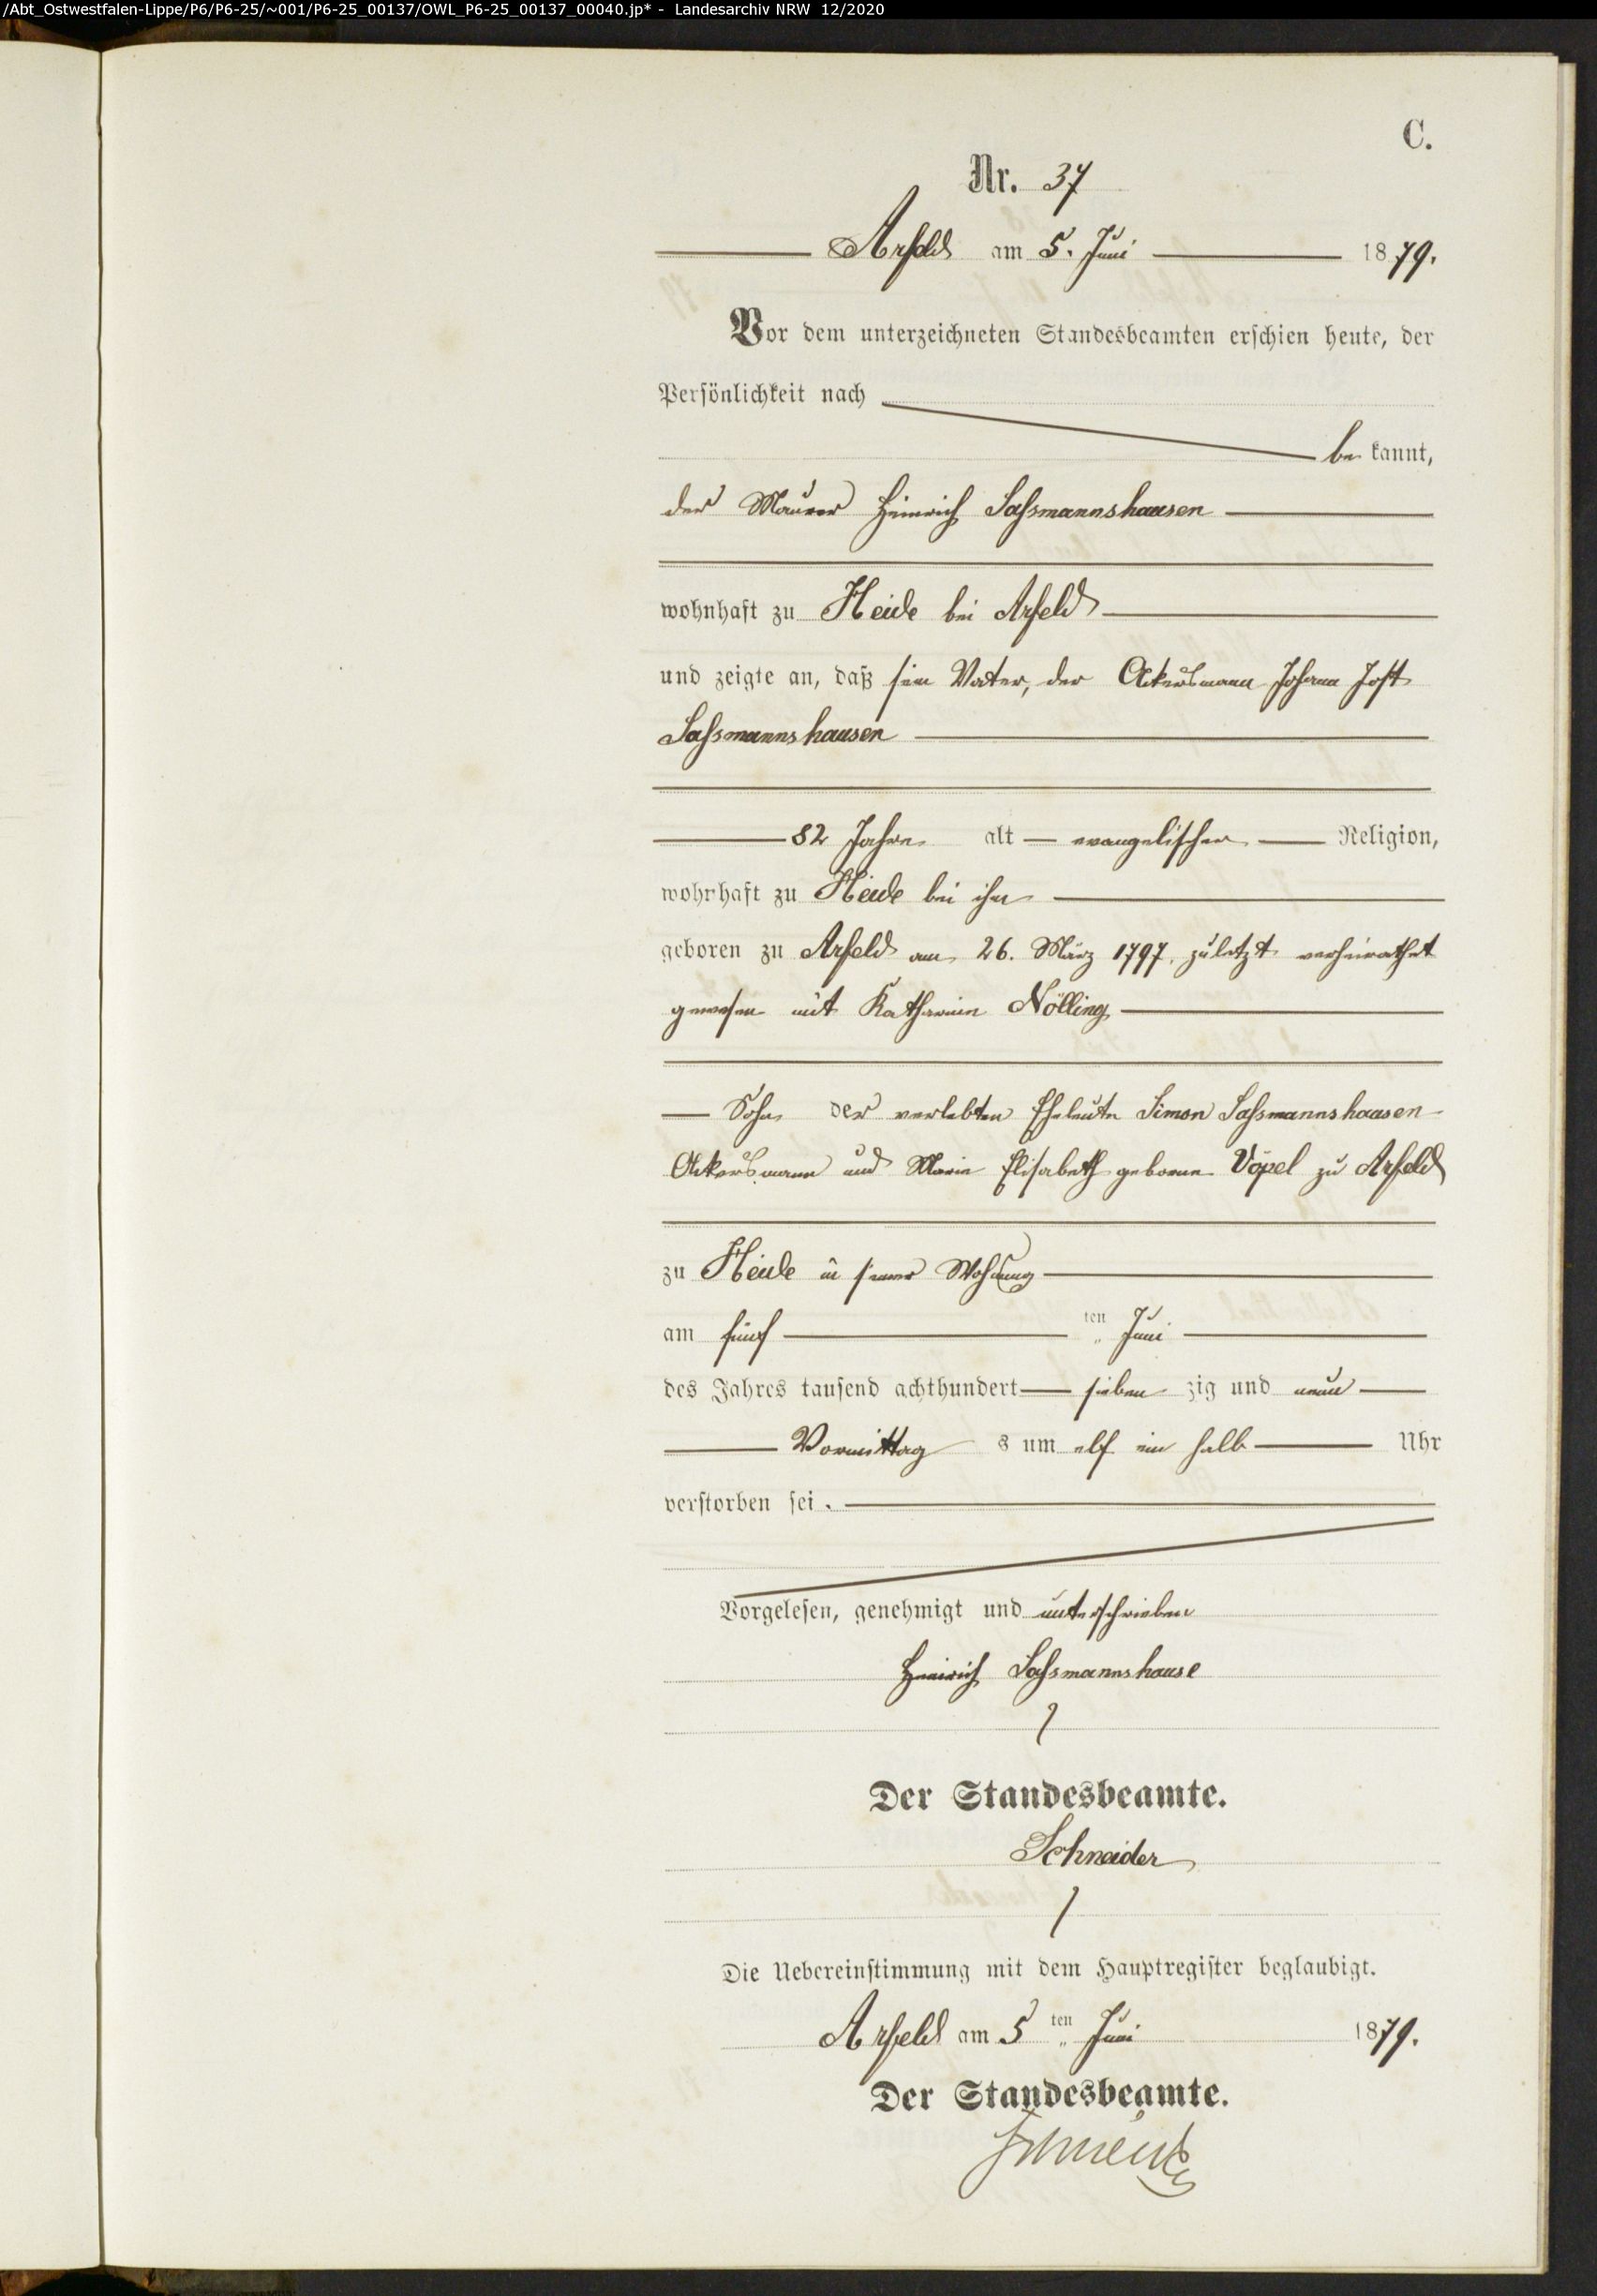 /Abt_Ostwestfalen-Lippe/P6/P6-25/~001/P6-25_00137/OWL_P6-25_00137_00040.jp* - Landesarchiv NRW 12/2020
C.
Nr. 37
Arfeld am 5. Juni 1879.
Vor dem unterzeichneten Standesbeamten erschien heute, der
Persönlichkeit nach
be kannt,
der Maurer Heinrich Saßmannshausen
wohnhaft zu Heide bei Arfeld
und zeigte an, daß sein Vater, der Ackersmann Johann Jost
Saßmannshausen
82 Jahre alt evangelischer Religion,
wohnhaft zu Heide bei ihm
geboren zu Arfeld am 26. März 1797, zuletzt verheirathet
gewesen mit Katharine Nölling
Sohn der verlebten Eheleute Simon Saßmannshausen
Ackersmann und Marie Elisabeth geborne Vöpel zu Arfeld
zu Heide in seiner Wohnung
am fünf ten Juni
des Jahres tausend achthundert sieben zig und neun
Vormittag s um elf ein halb Uhr
verstorben sei.
Vorgelesen, genehmigt und unterschrieben
Heinrich Saßmannshause
Der Standesbeamte.
Schneider
Die Uebereinstimmung mit dem Hauptregister beglaubigt.
Arfeld am 5 ten Juni 1879.
Der Standesbeamte.
Schneider